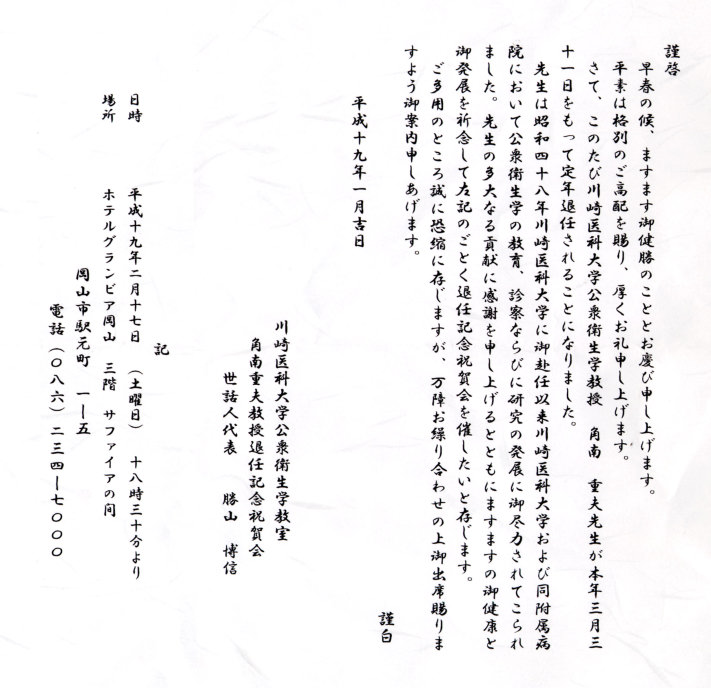 謹啓
早春の候、ますます御健勝のこととお慶び申し上げます。
平素は格別のご高配を賜り、厚くお礼申し上げます。
さて、このたび川崎医科大学公衆衛生学教授　角南　重夫先生が本年三月三
十一日をもって定年退任されることになりました。
先生は昭和四十八年川崎医科大学に御赴任以来川崎医科大学および同附属病
院において公衆衛生学の教育、診察ならびに研究の発展に御尽力されてこられ
ました。先生の多大なる貢献に感謝を申し上げるとともにますますの御健康と
御発展を祈念して左記のごとく退任記念祝賀会を催したいと存じます。
ご多用のところ誠に恐縮に存じますが、万障お繰り合わせの上御出席賜りま
すよう御案内申しあげます。
謹白
平成十九年一月吉日
川崎医科大学公衆衛生学教室
角南重夫教授退任記念祝賀会
世話人代表　勝山　博信
記
日時　平成十九年二月十七日　（土曜日）　十八時三十分より
場所　ホテルグランビア岡山　三階　サファイアの間
岡山市駅元町　一ー五
電話（〇八六）二三四ー七〇〇〇